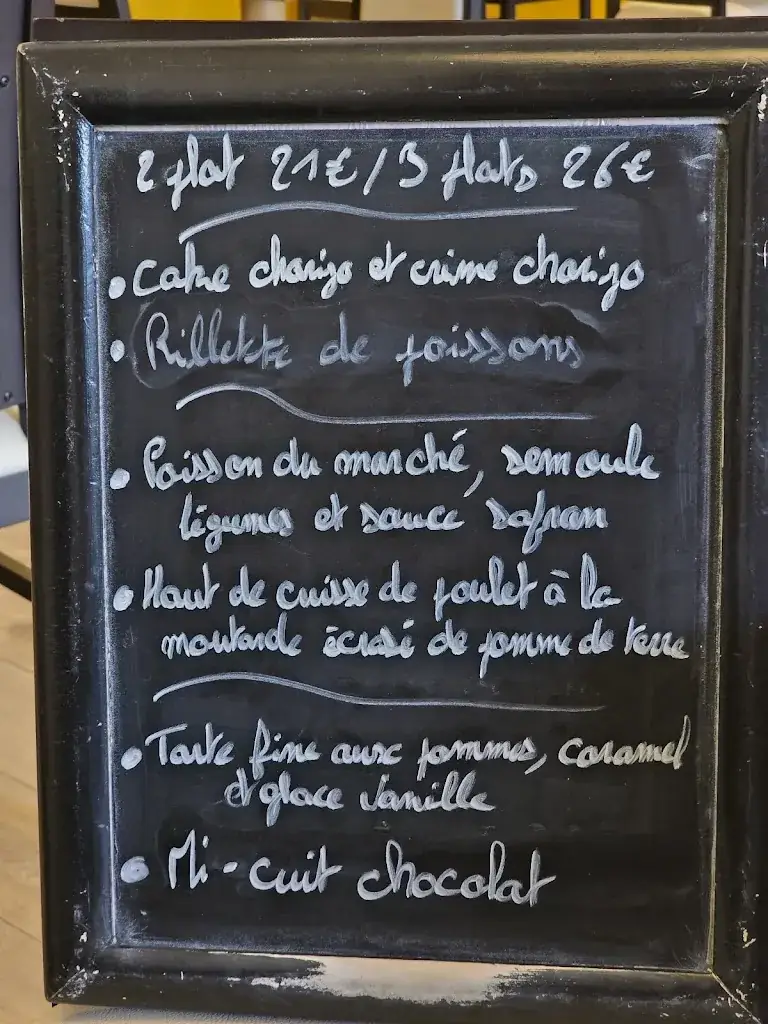 2 plat 21€ / 3 plats 26€
• Cake chorizo et crème chorizo
• Rillette de poissons
• Poisson du marché, semoule
légumes et sauce safran
• Haut de cuisse de poulet à la
moutarde écrasé de pomme de terre
• Tarte fine aux pommes, caramel
et glace vanille
• Mi-cuit chocolat